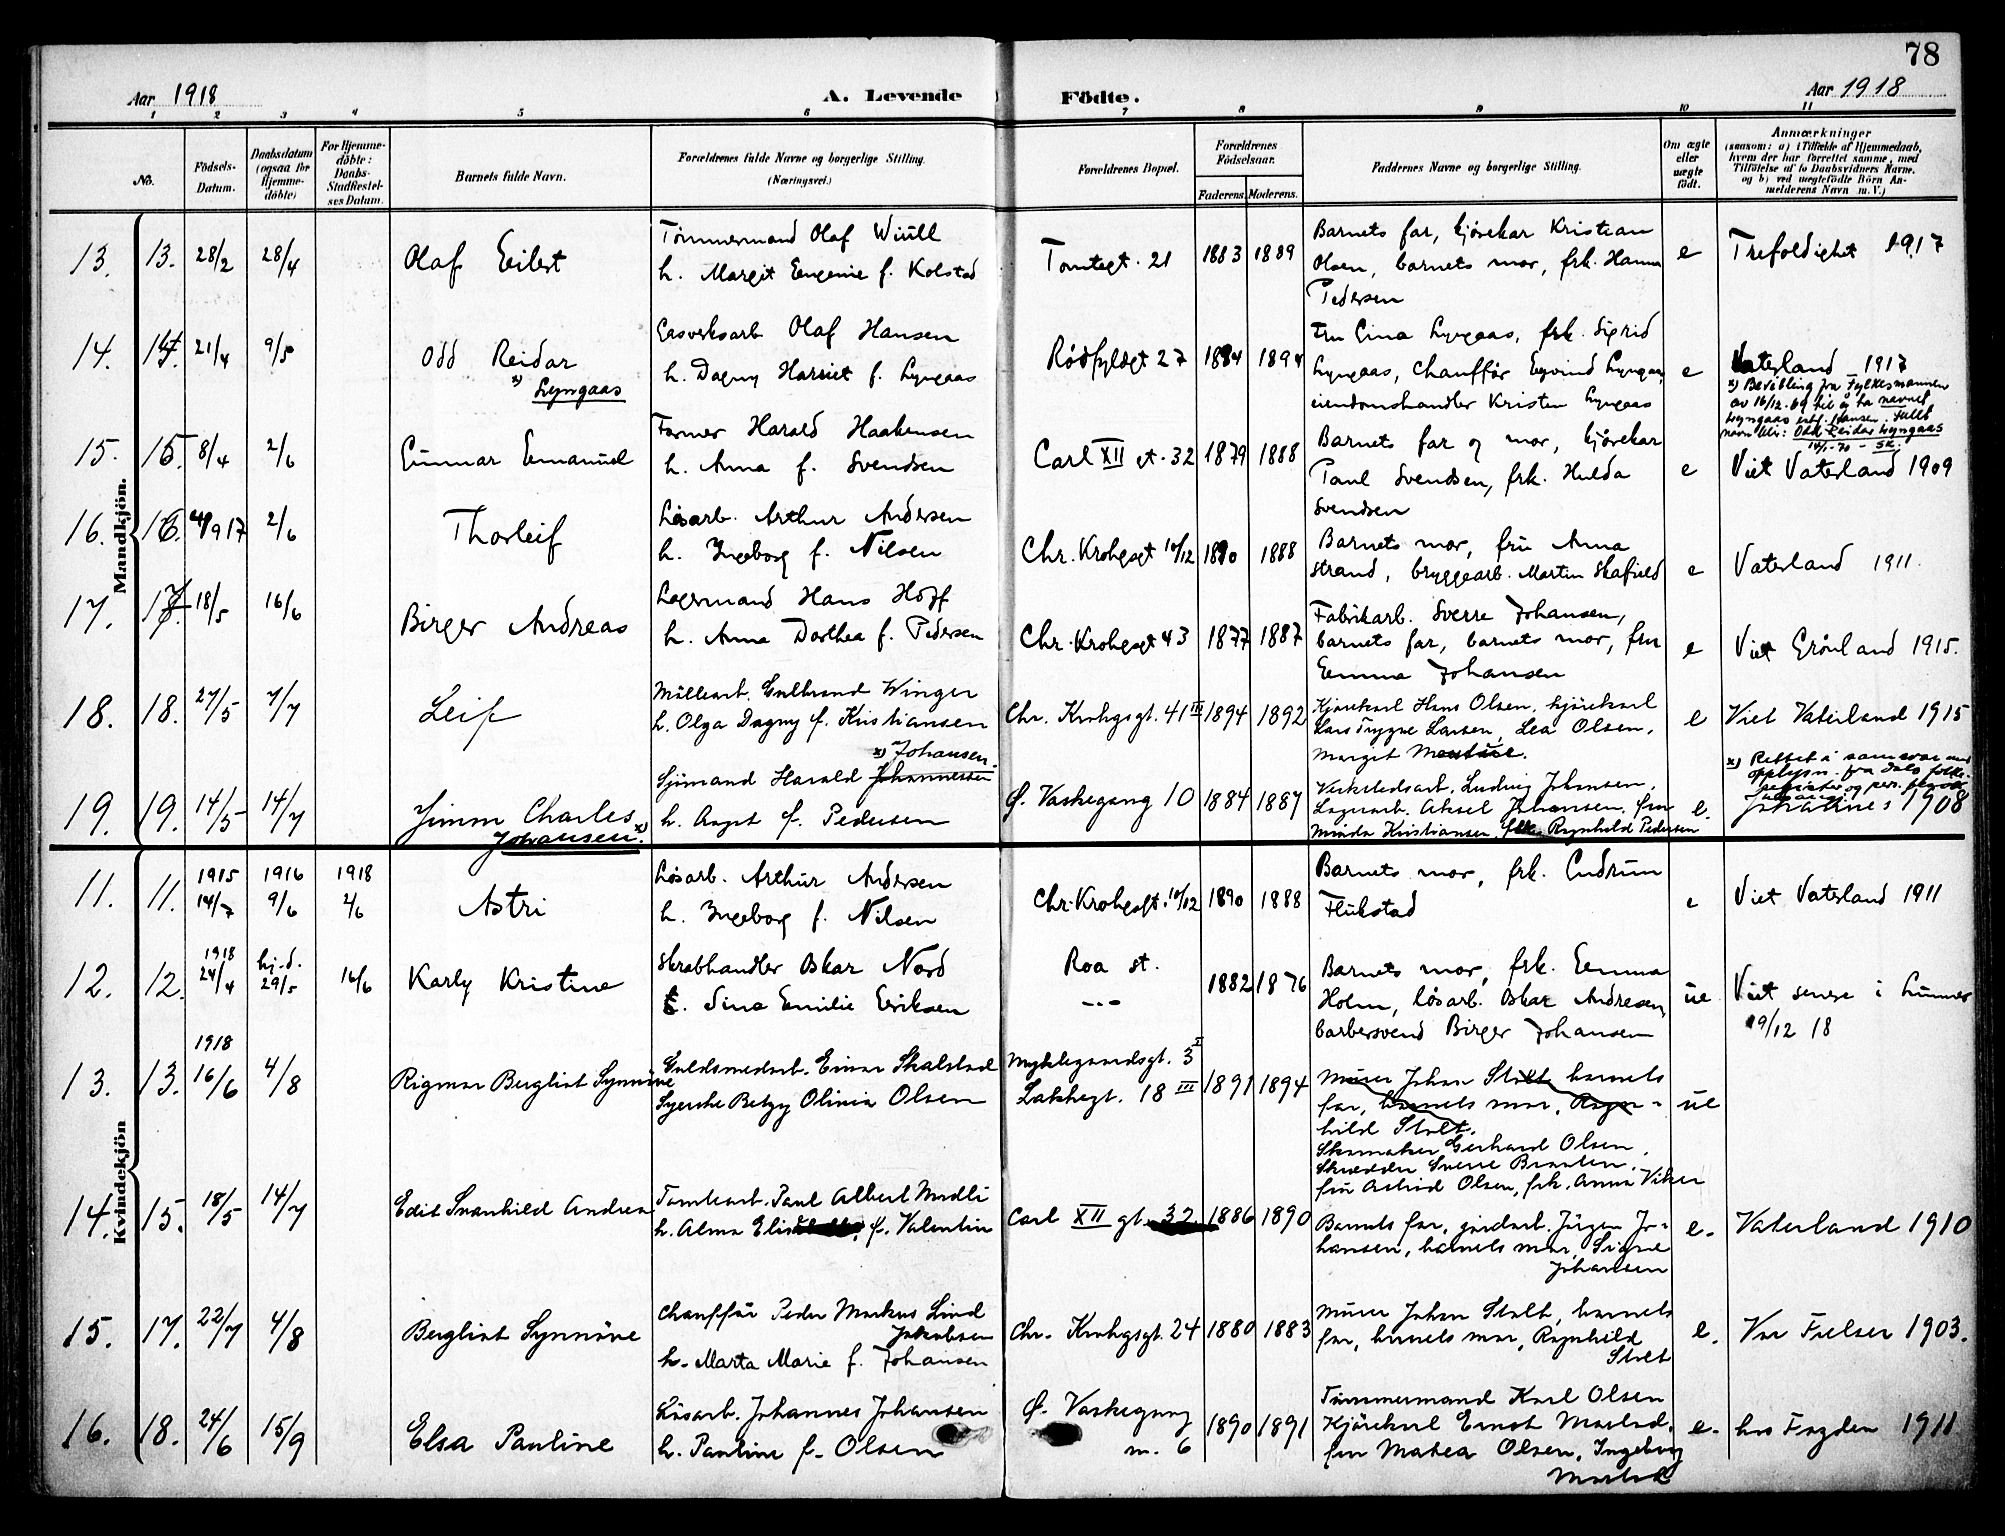 78
Aar 1918
A. Levende Födte.
Aar 1918
1 2 3 4 5 6 7 8 9 10 11
No.
Födsels-Datum.
Daabsdatum (ogsaa for Hjemme-döbte)
For Hjemme-döbte: Daabs-Stadfæstel-ses Datum.
Barnets fulde Navn.
Forældrenes fulde Navne og borgerlige Stilling. (Næringsvei.)
Forældrenes Bopæl.
Forældrenes Födselsaar.
Faderens. Moderens.
Faddernes Navne og borgerlige Stilling.
Om ægte eller uægte födt.
Anmærkninger
(saasom: a) i Tilfælde af Hjemmedaab, hvem der har forrettet samme, med Tilföielse af to Daabsvidners Navne. og b) ved uægtefödte Börn An-melderens Navn m. V.)
Mandkjön.
13. 13. 28/2 28/4 Olaf Eilert
Tömmermand Olaf Wiull
h. Margit Eugenie f. Kolstad
Tomtegt. 21 1883 1889
Barnets far, kjörekar Kristian
Olsen, barnets mor, frk. Hanna
Pedersen
e Trefoldighet 1917
14. 14. 21/4 9/5 Odd Reidar
x) Lyngaas
Gasverksarb Olaf Hansen
h. Dagny Harriet f. Lyngaas
Rödfyldgt 27 1884 1894
fru Gina Lyngaas, frk. Sigrid
Lyngaas, Chaufför Eyvind Lyngaas,
eiendomshandler Kristen Lyngaas
e Vaterland 1917
x) Bevilling fra Fylkesmannen
av 16/12-69 til å ta navnet
Lyngaas istf. Hansen. Fullt
navn blir: Odd Reidar Lyngaas
14/1-70 - SK.
15. 15. 8/4 2/6 Gunnar Emanuel
Former Harald Haakensen
h. Anna f. Svendsen
Carl XII gt. 32 1879 1888
Barnets far og mor, kjörekar
Paul Svendsen, frk. Hulda
Svendsen
e Viet Vaterland 1909
16. 16. 4/9 17 2/6 Thorleif
Lösarb. Arthur Andersen
h. Ingeborg f. Nilsen
Chr. Krohgsgt 10/12 1890 1888
Barnets mor, fru Anna
Strand, bryggearb. Martin Skafjeld
e Vaterland 1911.
17. 17. 18/5 16/6 Birger Andreas
Lagermand Hans Hoff
h. Anna Dorthea f. Pedersen
Chr. Krohgsgt 43 1877 1887
Fabrikarb. Sverre Johansen,
barnets far, barnets mor, fru
Emma Johansen
e Viet Grönland 1915.
18. 18. 27/5 7/7 Leif
Möllearb. Gulbrand Winger
h. Olga Dagny f. Kristiansen
Chr. Krohgsgt. 41 III 1894 1892
Kjörekarl Hans Olsen, kjörekarl
Lars Trygve Larsen, Lea Olsen,
Margit
e Viet Vaterland 1915
19. 19. 14/5 14/7 Jimm Charles
Johansen x)
x) Johansen.
Sjömand Harald Johannessen
h. Aagot f. Pedersen
Ø. Vaskegang 10 1884 1887
Verkstedsarb. Ludvig Johansen,
Lagerarb. Aksel Johansen, fru
Minda Kristiansen, frk. Ragnhild Pedersen
e. Johannes 1908
x) Rettet i samsvar med
opplysn. fra Oslo folke-
register og pers. fl.
Kvindekjön
11. 11. 1915 14/7 1916 9/6 1918 2/6 Astri
Lösarb. Arthur Andersen
h. Ingeborg f. Nilsen
Chr. Krohgsgt. 10/12 1890 1888
Barnets mor, frk. Gudrun
Flikstad
e Viet Vaterland 1911
12. 12. 1918 24/4 hj.d. 29/5 16/6 Karly Kristine
Skrabhandler Oskar Nord
t. Sina Emilie Eriksen
Roa st.
- - -
1882 1876
Barnets mor, frk. Emma
Holm, lösarb. Oskar Andresen,
barbersvend Birger Johansen
ue Viet senere i Lunner
19/12 18
13. 13. 1918 16/6 4/8 Rigmor Bergliot Synnöve
Guldsmedarb. Einar Skalstad
Syerske Betzy Olivia Olsen
Myklegaardsgt. 3 I
Lakkegt. 18 III 1891 1894
Murer Johan Stolt, barnets
far, barnets mor, Ragn-
hild Stolt.
Skomaker Gerhard Olsen,
Skredder Sverre Braaten,
fru Astrid Olsen, frk. Anna Viker
ue
14. 15. 18/5 14/7 Edit Svanhild Andrea
Tomtearb. Paul Albert Modli
h. Alma f. Valentin
Carl XII gt. 32. 1886 1890
Barnets far, gaardarb. Jörgen Jo-
hansen, barnets mor, Signe
Johansen
e. Vaterland 1910
15. 17. 22/7 4/8 Bergliot Synnöve
Chaufför Peder Markus Lind
Jakobsen
h. Marta Marie f. Johansen
Chr. Krohgsgt. 24 1880 1883
Murer Johan Stolt, barnets
far, barnets mor, Ragnhild
Stolt
e. Vor Frelser 1903.
16. 18. 24/6 15/9 Elsa Pauline
Lösarb. Johannes Johansen
h. Pauline f. Olsen
Ø. Vaskegang
n. 6 1890 1891
Tömmermand Karl Olsen
Kjörekarl Ernst
fru Matea Olsen, Ingeborg
e. hos Fogden 1911